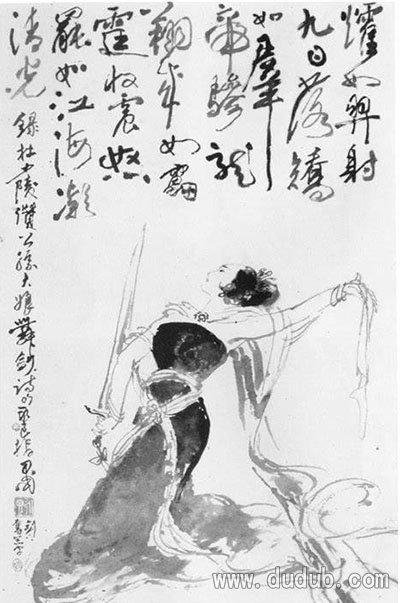 㸌如羿射
九日落矯
如羣
帝驂龍
翔来如雷
霆收震怒
罷如江海凝
清光
錄杜少陵讚公孫大娘舞劍詩句
www.dudub.com